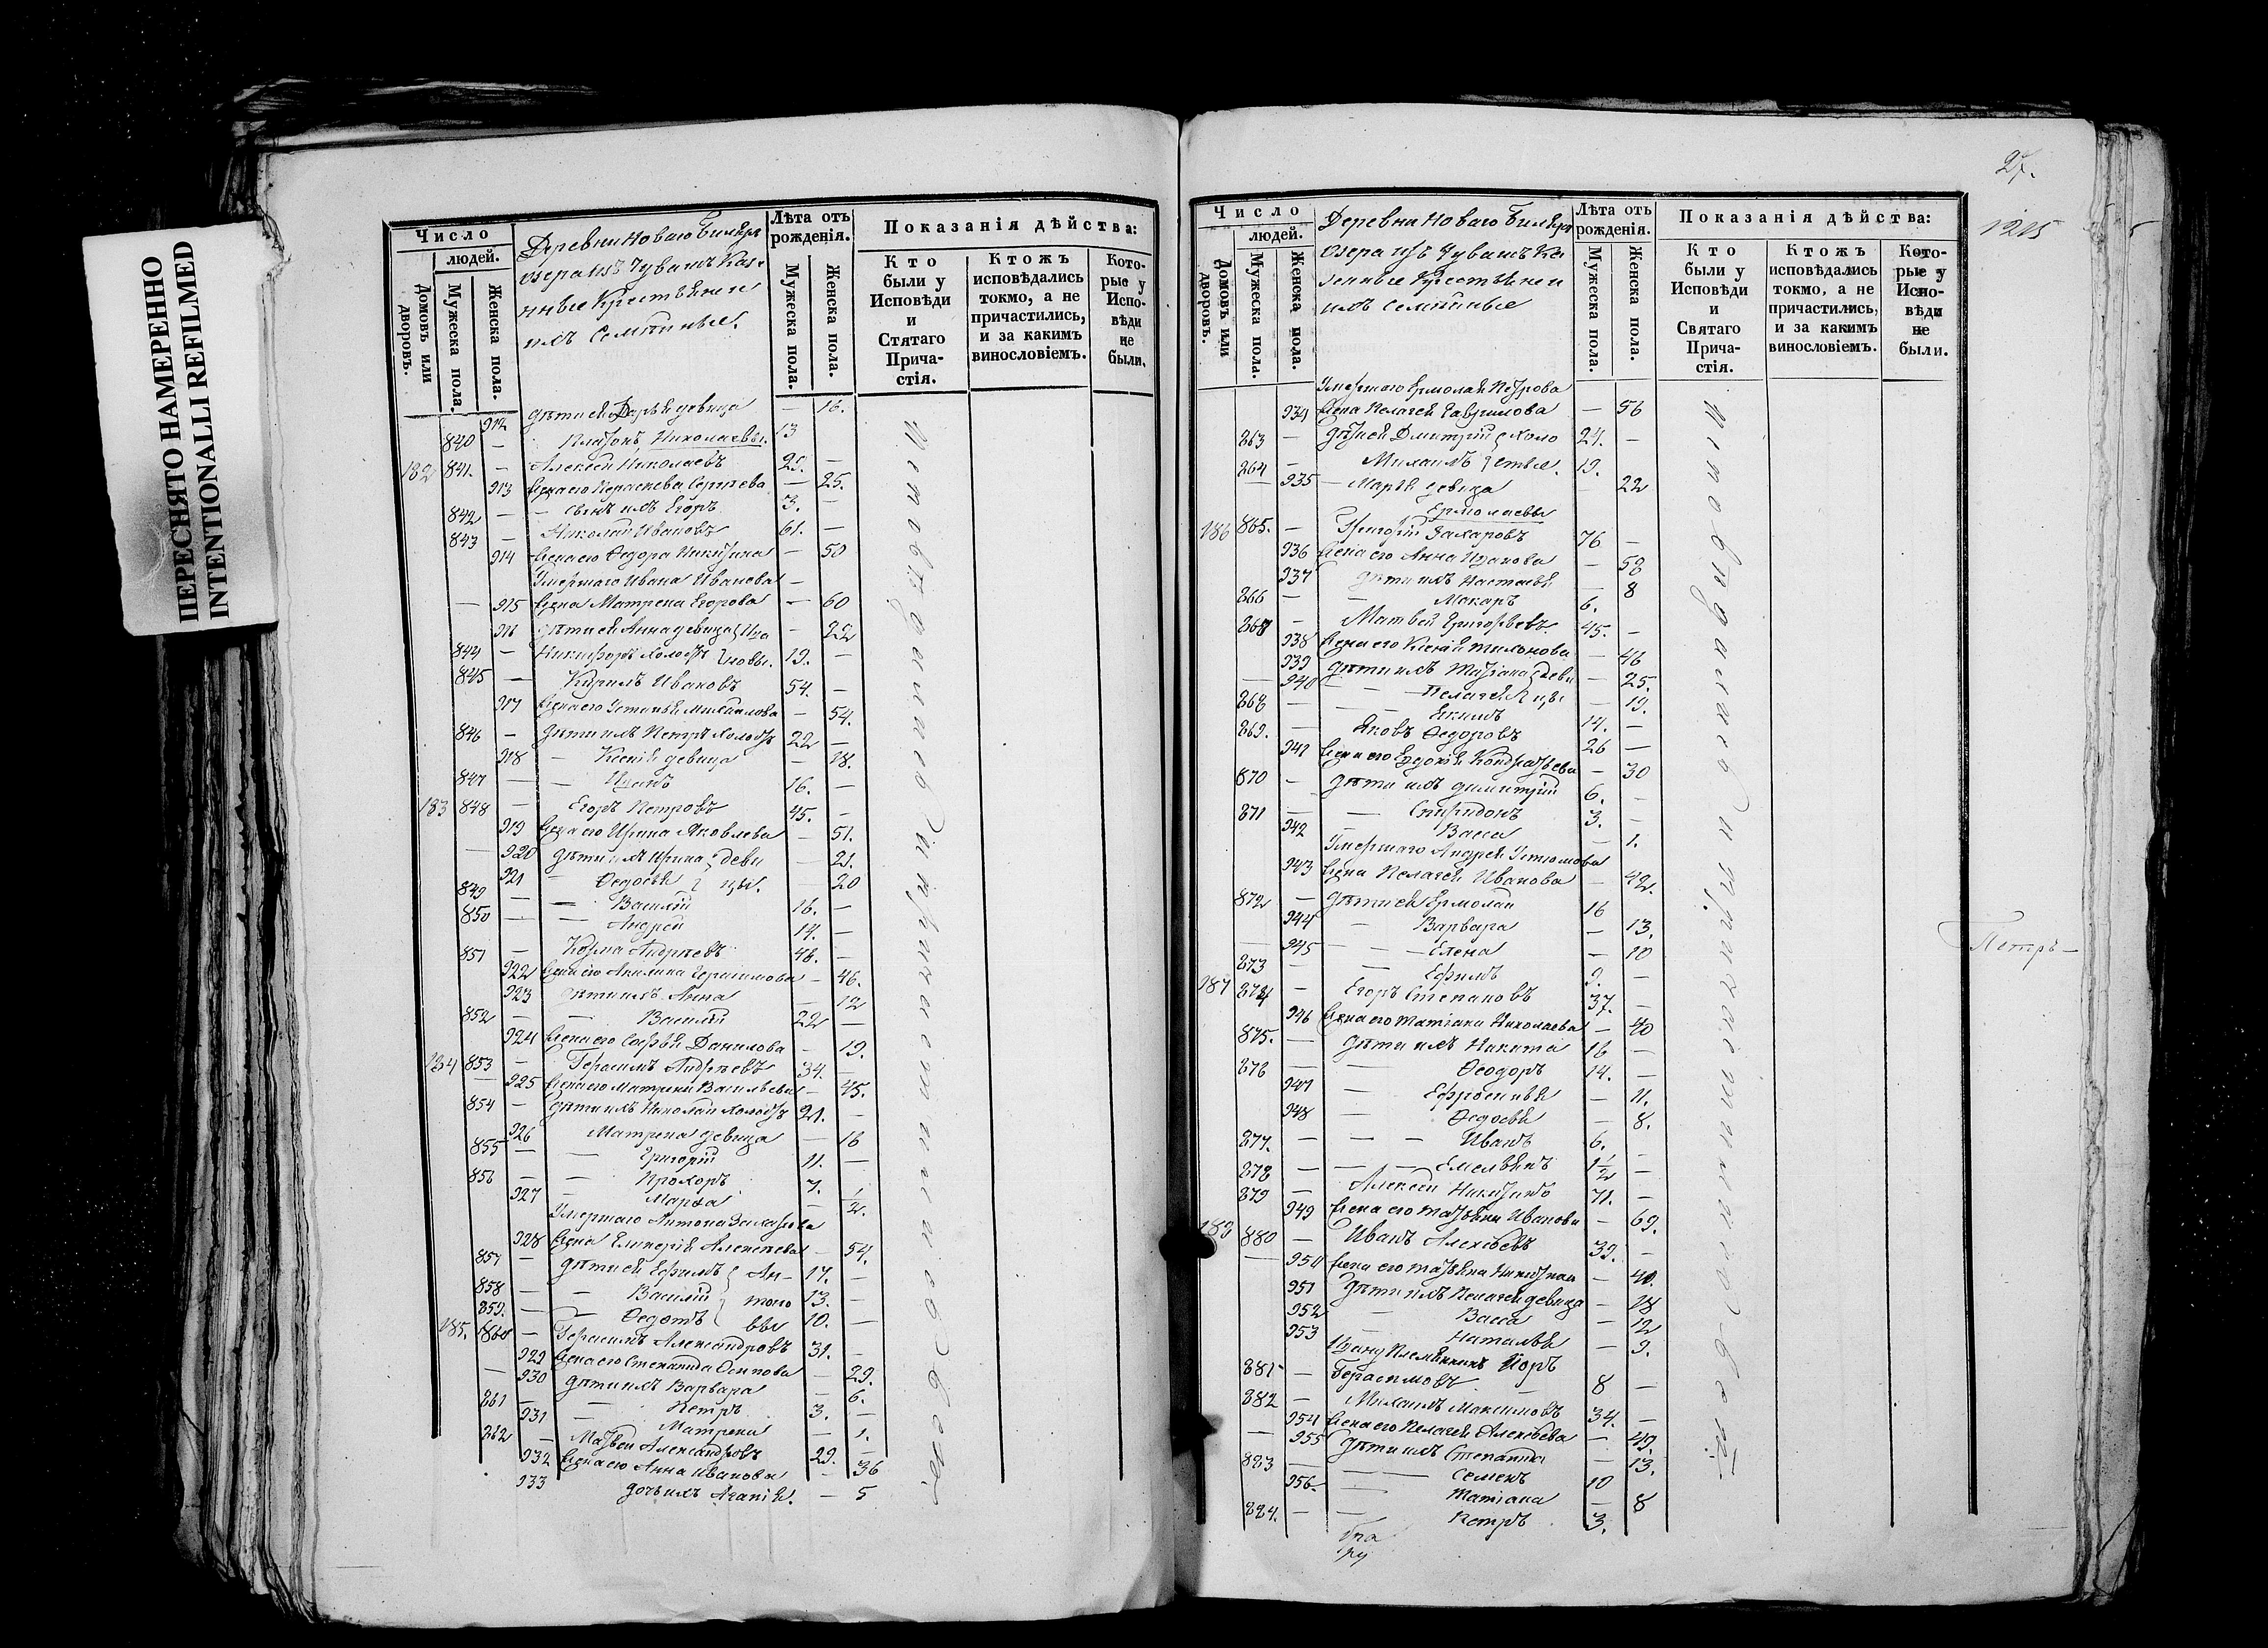 ПЕРЕСНЯТО НАМЕРЕННО
INTENTIONALLI REFILMED
Число
людей.
Домовъ или дворовъ.
Мужеска пола.
Женска пола.
Деревни Новаго
озера изъ Чувашъ Каз-
нные Крестьяне и
ихъ Семейные.
Лѣта отъ рожденія.
Мужеска пола.
Женска пола.
Показанія дѣйства:
Кто были у Исповѣди и Стятаго Прича-стія.
Ктожъ исповѣдались токмо, а не причастились, и за какимъ винословіемъ.
Кото-рые у Испо-вѣди не были.
912 дѣти ей Дарья девица — 16.
840 — Платонъ Николаевы. 13
182 841. — Алексей Николаевъ 25. —
913 Жена его Параскева Сергеева — 25.
842 — — сынъ ихъ Егоръ 3. —
843 — Николай Ивановъ 61. —
914 Жена его Федора Никитина — 50
Умершаго Ивана Иванова —
— 915 Жена Матрена Егорова — 60
916 дѣти ей Анна девица Ива — 22
844 — Никифоръ холостъ новы. 19. —
845 — Кирилъ Ивановъ 54. —
917 Жена его Устинья Михайлова — 54.
846 — Дѣти ихъ Петръ холостъ 22 —
918 — Ксенія девица — 18.
847 — — Иванъ 16. —
183 848 — Егоръ Петровъ 45. —
919 Жена его Ирина Яковлева — 51.
— 920 дѣти ихъ Ирина деви — 21.
921 — Федосья цы. — 20
849 — — Василій 16. —
850 — — Андрей 14. —
851 — Козма Андреевъ 48. —
922 Жена его Акилина Герасимова — 46.
923 дѣти ихъ Анна — 12
852 — — Василій 22 —
924 Жена его Софья Данилова — 19.
184 853 — Герасимъ Андреевъ 34. —
— 925 Жена его Матрена Васильева — 45.
854 — Дѣти ихъ Николай холостъ 21. —
926 Матрена девица — 16
855 — — Григорій 11. —
856 — — Прохоръ 7. —
927 — Марфа — 1/2.
Умершаго Антона Захарова
928 Жена Гликерія Алексеева — 54.
857 — дѣти ей Ефимъ Ан- 17. —
858 — — Василій тоно 13. —
859. — — Федотъ вы 10. —
185. 860 — Герасимъ Александровъ 31. —
929 Жена его Степанида Осипова — 29.
— 930 дѣти ихъ Варвара — 6.
861 — — Петръ 3. —
931 — Матрена — 1.
862 — Матвей Александровъ 29. —
932 Жена его Анна Иванова — 36
933 дочь ихъ Агапія. — 5
Исповѣдались и причастились
27.
1205
Число
людей.
Домовъ или дворовъ.
Мужеска пола.
Женска пола.
Деревни Новаго
Озера изъ Чувашъ Ка
зенные Крестьяне и
ихъ Семейные
Лѣта отъ рожденія.
Мужеска пола.
Женска пола.
Показанія дѣйства:
Кто были у Исповѣди и Святаго Прича-стія.
Ктожъ исповѣдались токмо, а не причастились, и за какимъ винословіемъ.
Кото-рые у Испо-вѣди не были.
Умершаго Ермолая Петрова
934 Жена Пелагея Гаврилова — 56
863 — Дѣти ей Дмитрій холо 24. —
864 — Михаилъ стые. 19.
— 935 — Марья девица 22
Ермолаевы
186 865. — Григорій Захаровъ 76 —
936 Жена его Анна Иванова — 58
937 дѣти ихъ Настасья — 8
866 — — Макаръ 6.
867 — Матвей Григорьевъ 45. —
938 Жена его Ксенія Тихонова — 46
939 Дѣти ихъ Татіана деви — 25.
940 — — Пелагея цы — 19.
868 — — Екимъ 14. —
869. — Яковъ Федоровъ 26 —
941 Жена его Евдокія Кондратьева — 30
870 — Дѣти ихъ Димитрій 6. —
871 — — Спиридонъ 3. —
942 — Васса — 1.
Умершаго Андрея
943 Жена Пелагея Иванова — 42.
872 — Дѣти ей Ермолай 16
944 — Варвара — 13.
945 — — Елена — 10
873 — — Ефимъ 9. —
187 874 — Егоръ Степановъ 37. —
946 Жена его Татіана Николаева — 40
875. — дѣти ихъ Никита 16 —
876 — — Феодоръ 14. —
947 — Ефросинья — 11.
948 — Федосья — 8.
877. — — — Иванъ 6. —
878 — — — Емельянъ 1 1/2 —
879 — Алексей Никитинъ 71. —
949 Жена его Татьяна Иванова — 69.
188 880 — Иванъ Алексеевъ 39. —
— 950 Жена его Татьяна Никитина — 40.
951 Дѣти ихъ Пелагея девица — 18
952 — Васса — 12
953 — Наталья — 9.
Ивану Племянникъ
881 — Герасимовъ 8 —
882 — Михаилъ Максимовъ 34. —
— 954 Жена его Пелагея Алексеева — 49.
955 Дѣти ихъ Степанида — 13.
883 — — Семенъ 10
956 — Татіана — 8
884. — — Петръ 3.
Исповѣдались и причастились
Петръ —